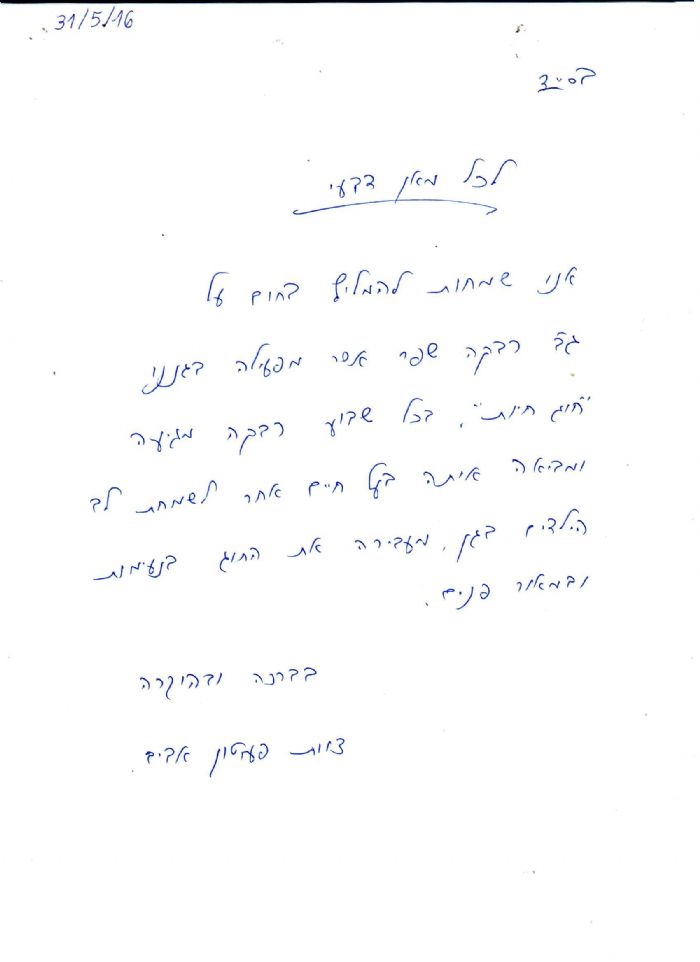 31/5/16
בס"ד
לכל מאן דבעי
אנו שמחות להמליץ בחום על
גב' רבקה שפר אסר מפעילה בגננו
"חוג חיות". בכל שבוע רבקה מגיעה
ומביאה איתה בעל חיים אחר לשמחת לב
הילדים בגן. מעבירה את החוג בנעימות
ובמאור פנים.
בברכה ובהוקרה
צוות פעוטון אביב